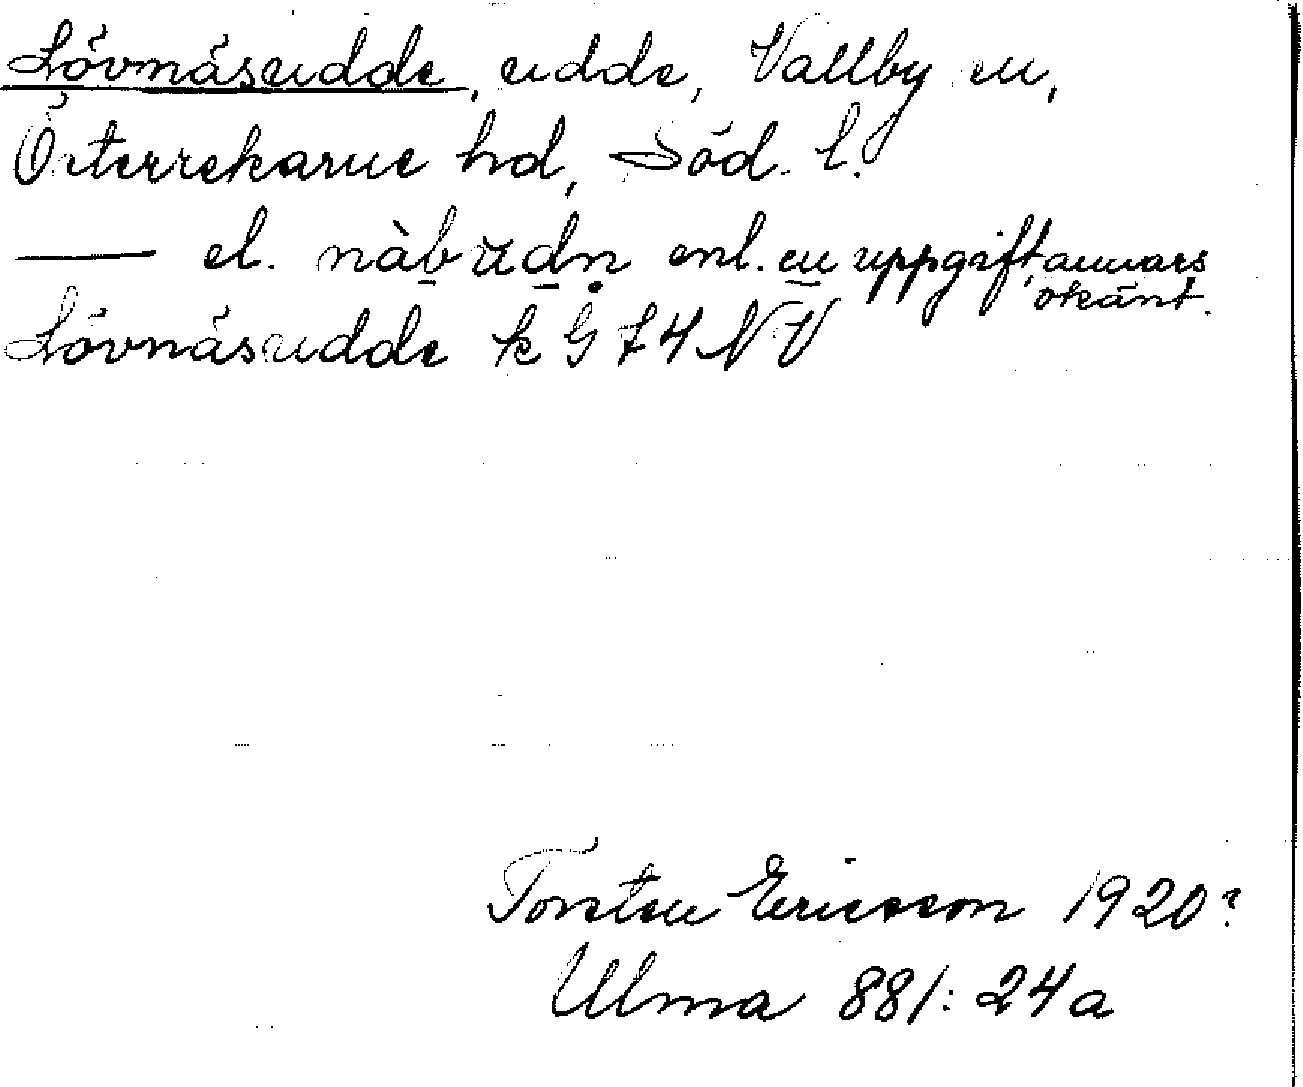 Lövnäsudde, udde, Vallby sn,
Österrekarne hd, Söd. l.
— el. nàbųdn̥ enl. en uppgift, annars
okänt.
Lövnäsudde k G 74 NV
Torsten Ericsson 1920?
Ulma 881:24a